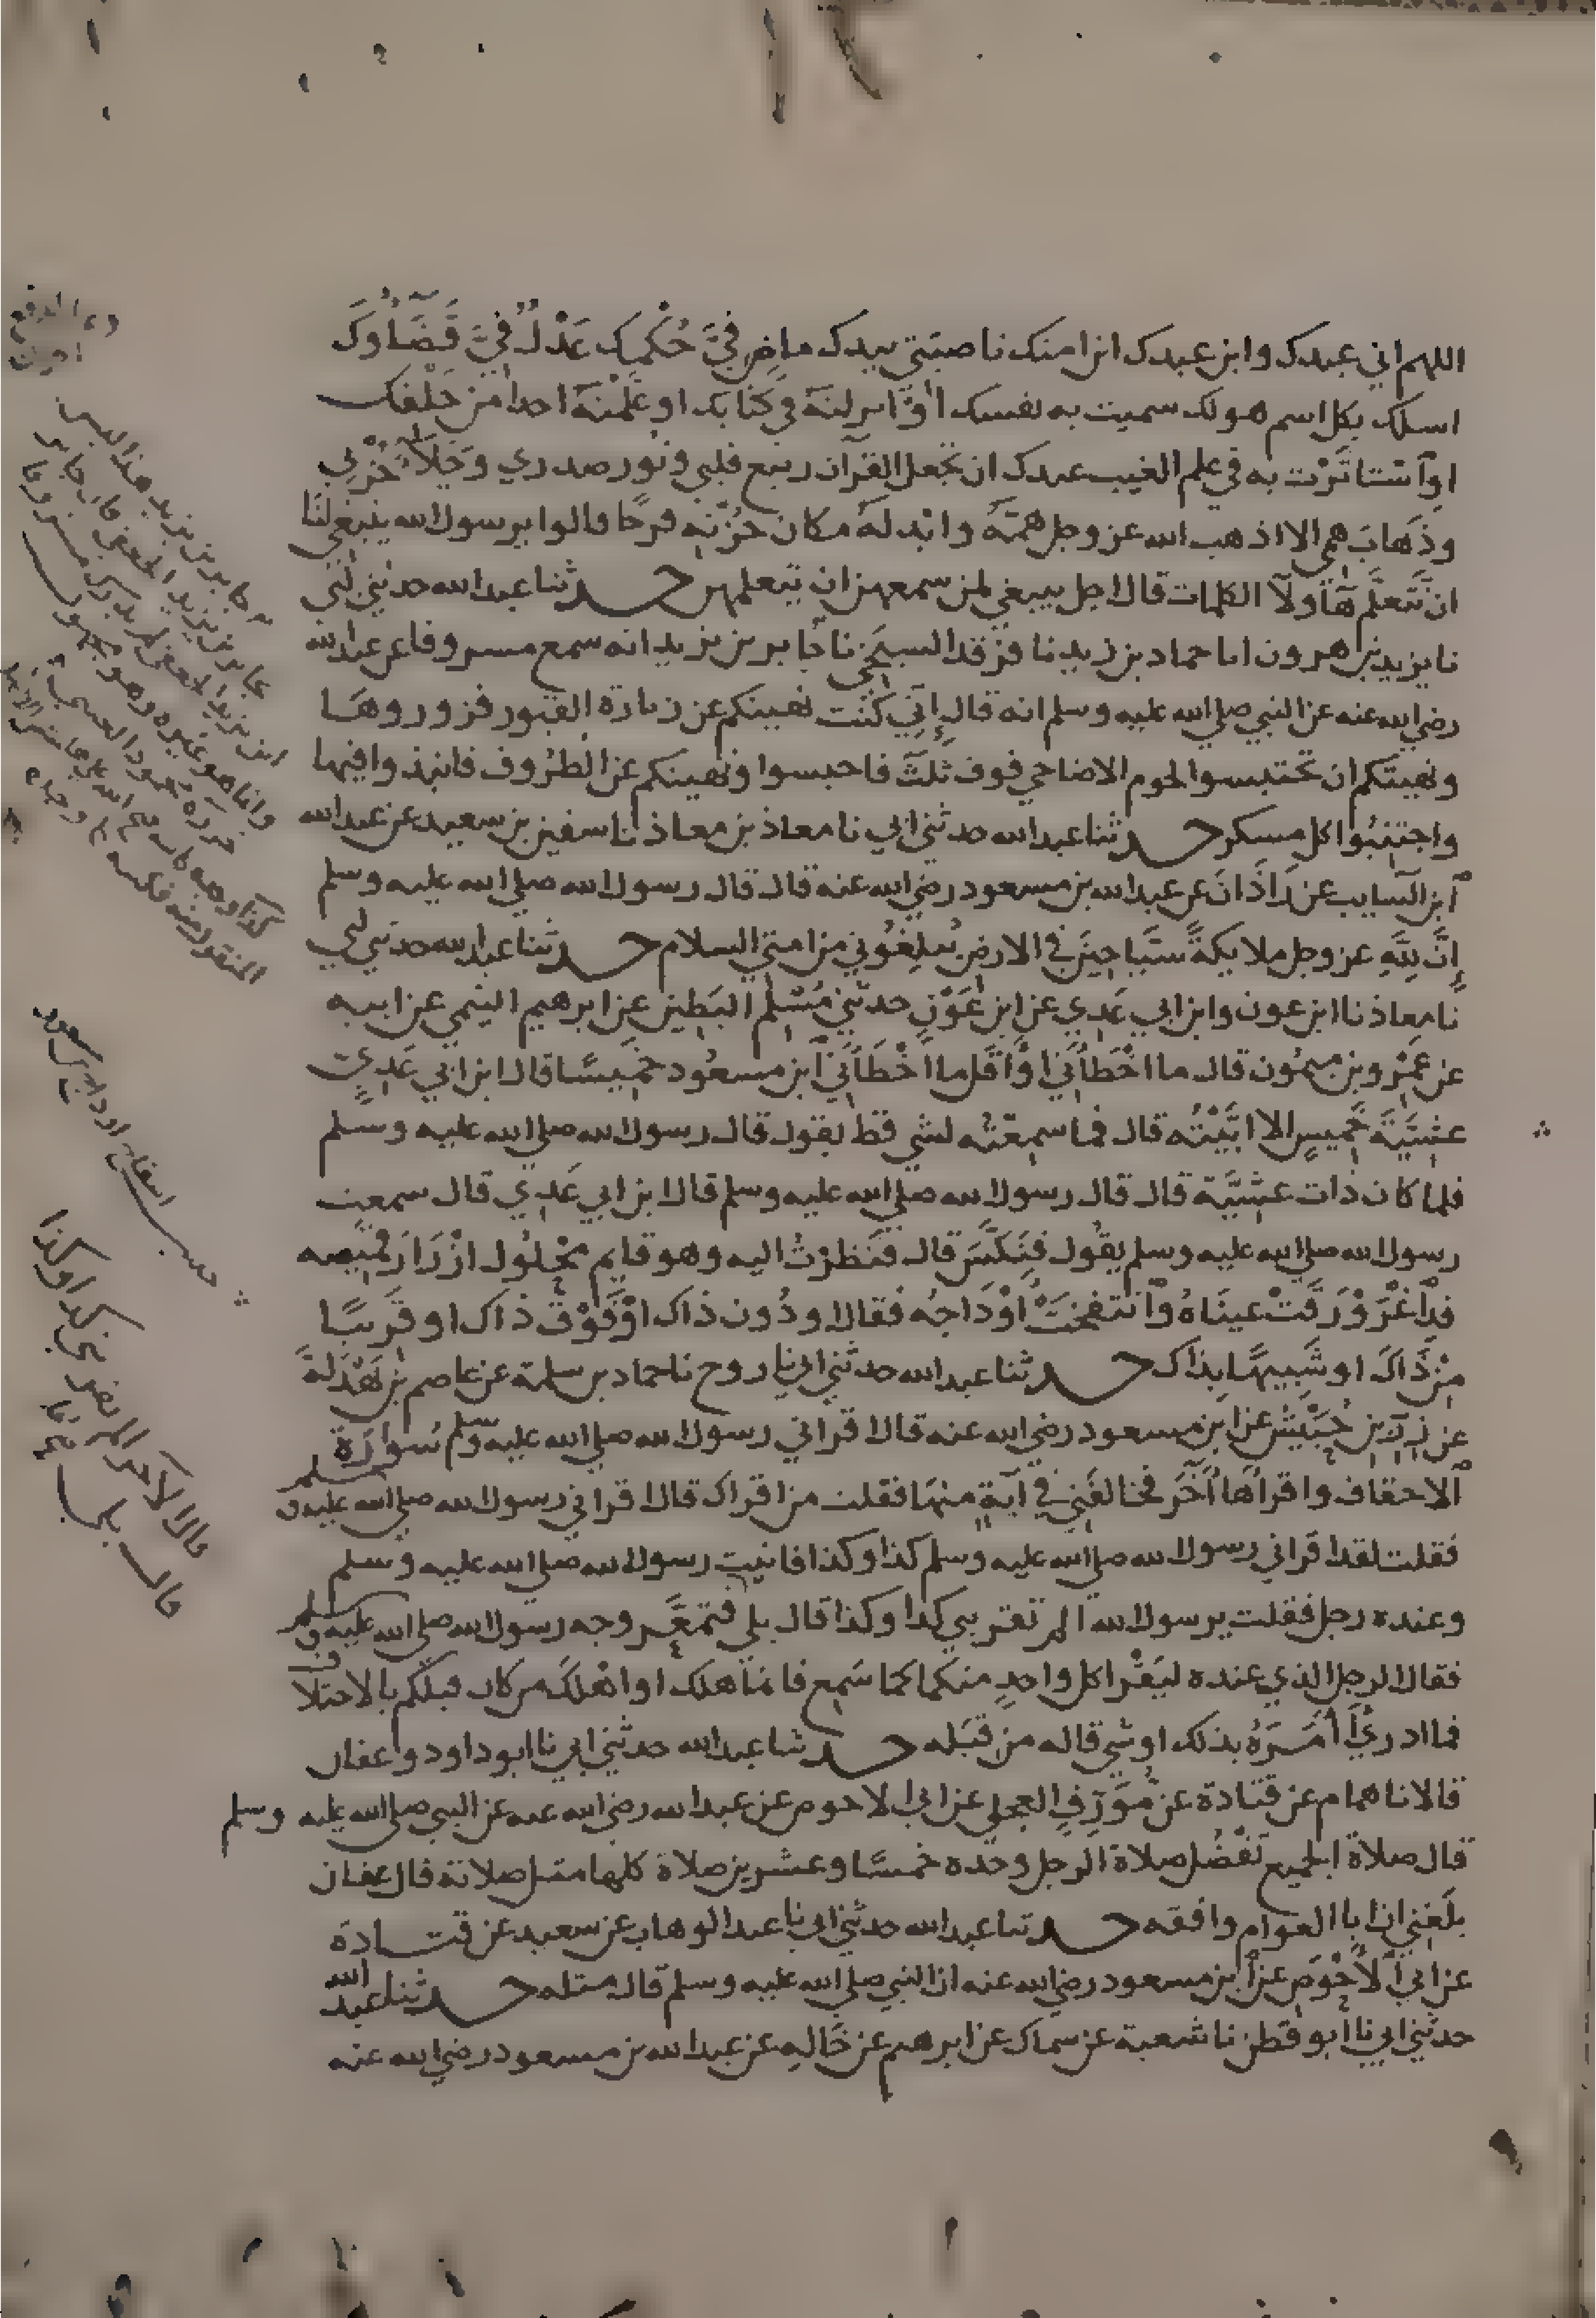 اللهم اني عبدك وابن عبدك ابن امتك ناصيتي بيدك ماضٍ فيَّ حُكْمك عَدْلٌ فيَّ قَضَاُوكَ
اسلك بكل اسم هو لك سميت به نفسك اَوْ انزلتهَ في كتابك او عَلَّمْتهَ احدا من خَلْقك
اوِ آسْتاثَرْت به في علم الغيب عندك ان تجعل القرآن ربيع قلبي ونُور صدري وَجَلآءَ حُزْني
وذَهابَ همي الا اذهب الله عز وجل همَّهُ وابْدلهُ مكان حُزْنِه فرحًا قالوا يرسول الله ينبغي لنَا
ان نَتَعلَّم هَآولآ الكلمات قال اجل ينبغي لمن سمعهن ان يتعلمهن حدثنا عبد الله حدثني ابي
نا يزيد بن هرون انا حماد بن زيد نا فَرْقد السبَخي نا جَابر بن يزيد انه سمع مسروقا عن عبد الله
رضي الله عنه عن النبي صلي الله عليه وسلم انه قال إِنِّي كُنْت نهيتكم عن زيارة القبور فزوروهَا
ونهيتكم ان تحتبسوا لحوم الاضاحي فوق ثلثَ فاحبسوا ونهيتكم عن الظرُوف فانبذوا فيها
واجتنبُوا كل مسكر حدثنا عبد الله حدثني ابي نا معاذ بن معاذ نا سفين بن سعيد عن عبد الله
آبن السايب عن زَاذَانَ عن عبد الله بن مسعود رضي الله عنه قال قال رسول الله صلي الله عليه وسلم
إِنَّ لِلَّهِ عز وجل ملايكةً سَيَّاحِينَ في الارض يُبلِغُوني من امتي السلام حدثنا عبد الله حدثني ابي
نا مُعاذ نا ابن عون وابن ابي عَدِي عن ابن عَوْنٍ حدثني مُسْلِم البَطِين عن ابرهيم التيمي عن ابيه
عن عَمْرو بن ميمُون قال ما اخْطَأَنِي اوْ اقَل ما اَخْطَأَنِي آبن مسعُود خمِيسًا قال ابن ابي عَدِيٍّ
عشيَّةَ خَمِيسٍ الا اتَيْتُه قال فما سمِعتُه لشي قط يقول قال رسول الله صلي الله عليه وسلم
فلما كان ذات عشِيَّة قال قال رسول الله صلي الله عليه وسلم قال ابن ابي عَدِي قال سمعت
رسول الله صلي الله عليه وسلم يقُول فَنَكَّسَ قال فنَظرْتُ اليه وهو قايم محْلُول ازْرَارَ قميصه
قد آغْرَوْرَقَتْ عينَاهُ وآنتفخَتْ اوْدَاجُه فقال او دُون ذاك اوْ فَوْق ذاك او قَريبًا
مِنْ ذَاكَ او شَبِيهًا بذاك حدثنا عبد الله حدثني ابي نا روح نا حماد بن سلمة عن عاصم بْن بَهْدَلةَ
عن زِرِّ بن حُبَيْش عن ابن مسعود رضي الله عنه قال اقراني رسول الله صلي الله عليه وسلم سُوارةَ
آلاحقاف واقرأَها آخَرَ فخالفَني في آيةٍ منها فقلت من اقراك قال اقراني رسول الله صلي الله عليه وسلم
فقلت لقد اقراني رسول الله صلي الله عليه وسلم كذا وكذا فاتيت رسول الله صلي الله عليه وسلم
وعنده رجل فقلت يرسول الله الم تقريني كذا وكذا قال بلي فتمَعَّر وجه رسول الله صلي الله عليه وسلم
فقال الرجل الذي عنده ليَقْرا كل واحدٍ منكما كما سَمِع فانما هلك او اهْلكَ من كان قبلكم بالاختلاف
فما ادريْ أَمَرَهُ بذلك او شي قاله من قِبَله حدثنا عبد الله حدثني ابي نا ابو داود وعفان
قالا نا همام عن قتادة عن مُوَرِّقٍ العجلي عن ابي الاحوص عن عبد الله رضي الله عنه عن النبي صلي الله عليه وسلم
قال صلاة الجميع تَفْضُل صلاة الرجل وحده خمسًا وعشرين صلاة كلها مثل صلاته قال عفان
بلَغني ان ابا العوام وافقه حدثنا عبد الله حدثني ابي نا عبد الوهاب عن سعيد عن قتادة
عن ابي آلاَحْوَص عن آبن مسعود رضي الله عنه ان النبي صلي الله عليه وسلم قال مثله حدثنا عبد الله
حدثني ابي نا أبو قطن نا شعبة عن سماك عن ابرهيم عن خَالِهِ عن عبد الله بن مسعود رضي الله عنه